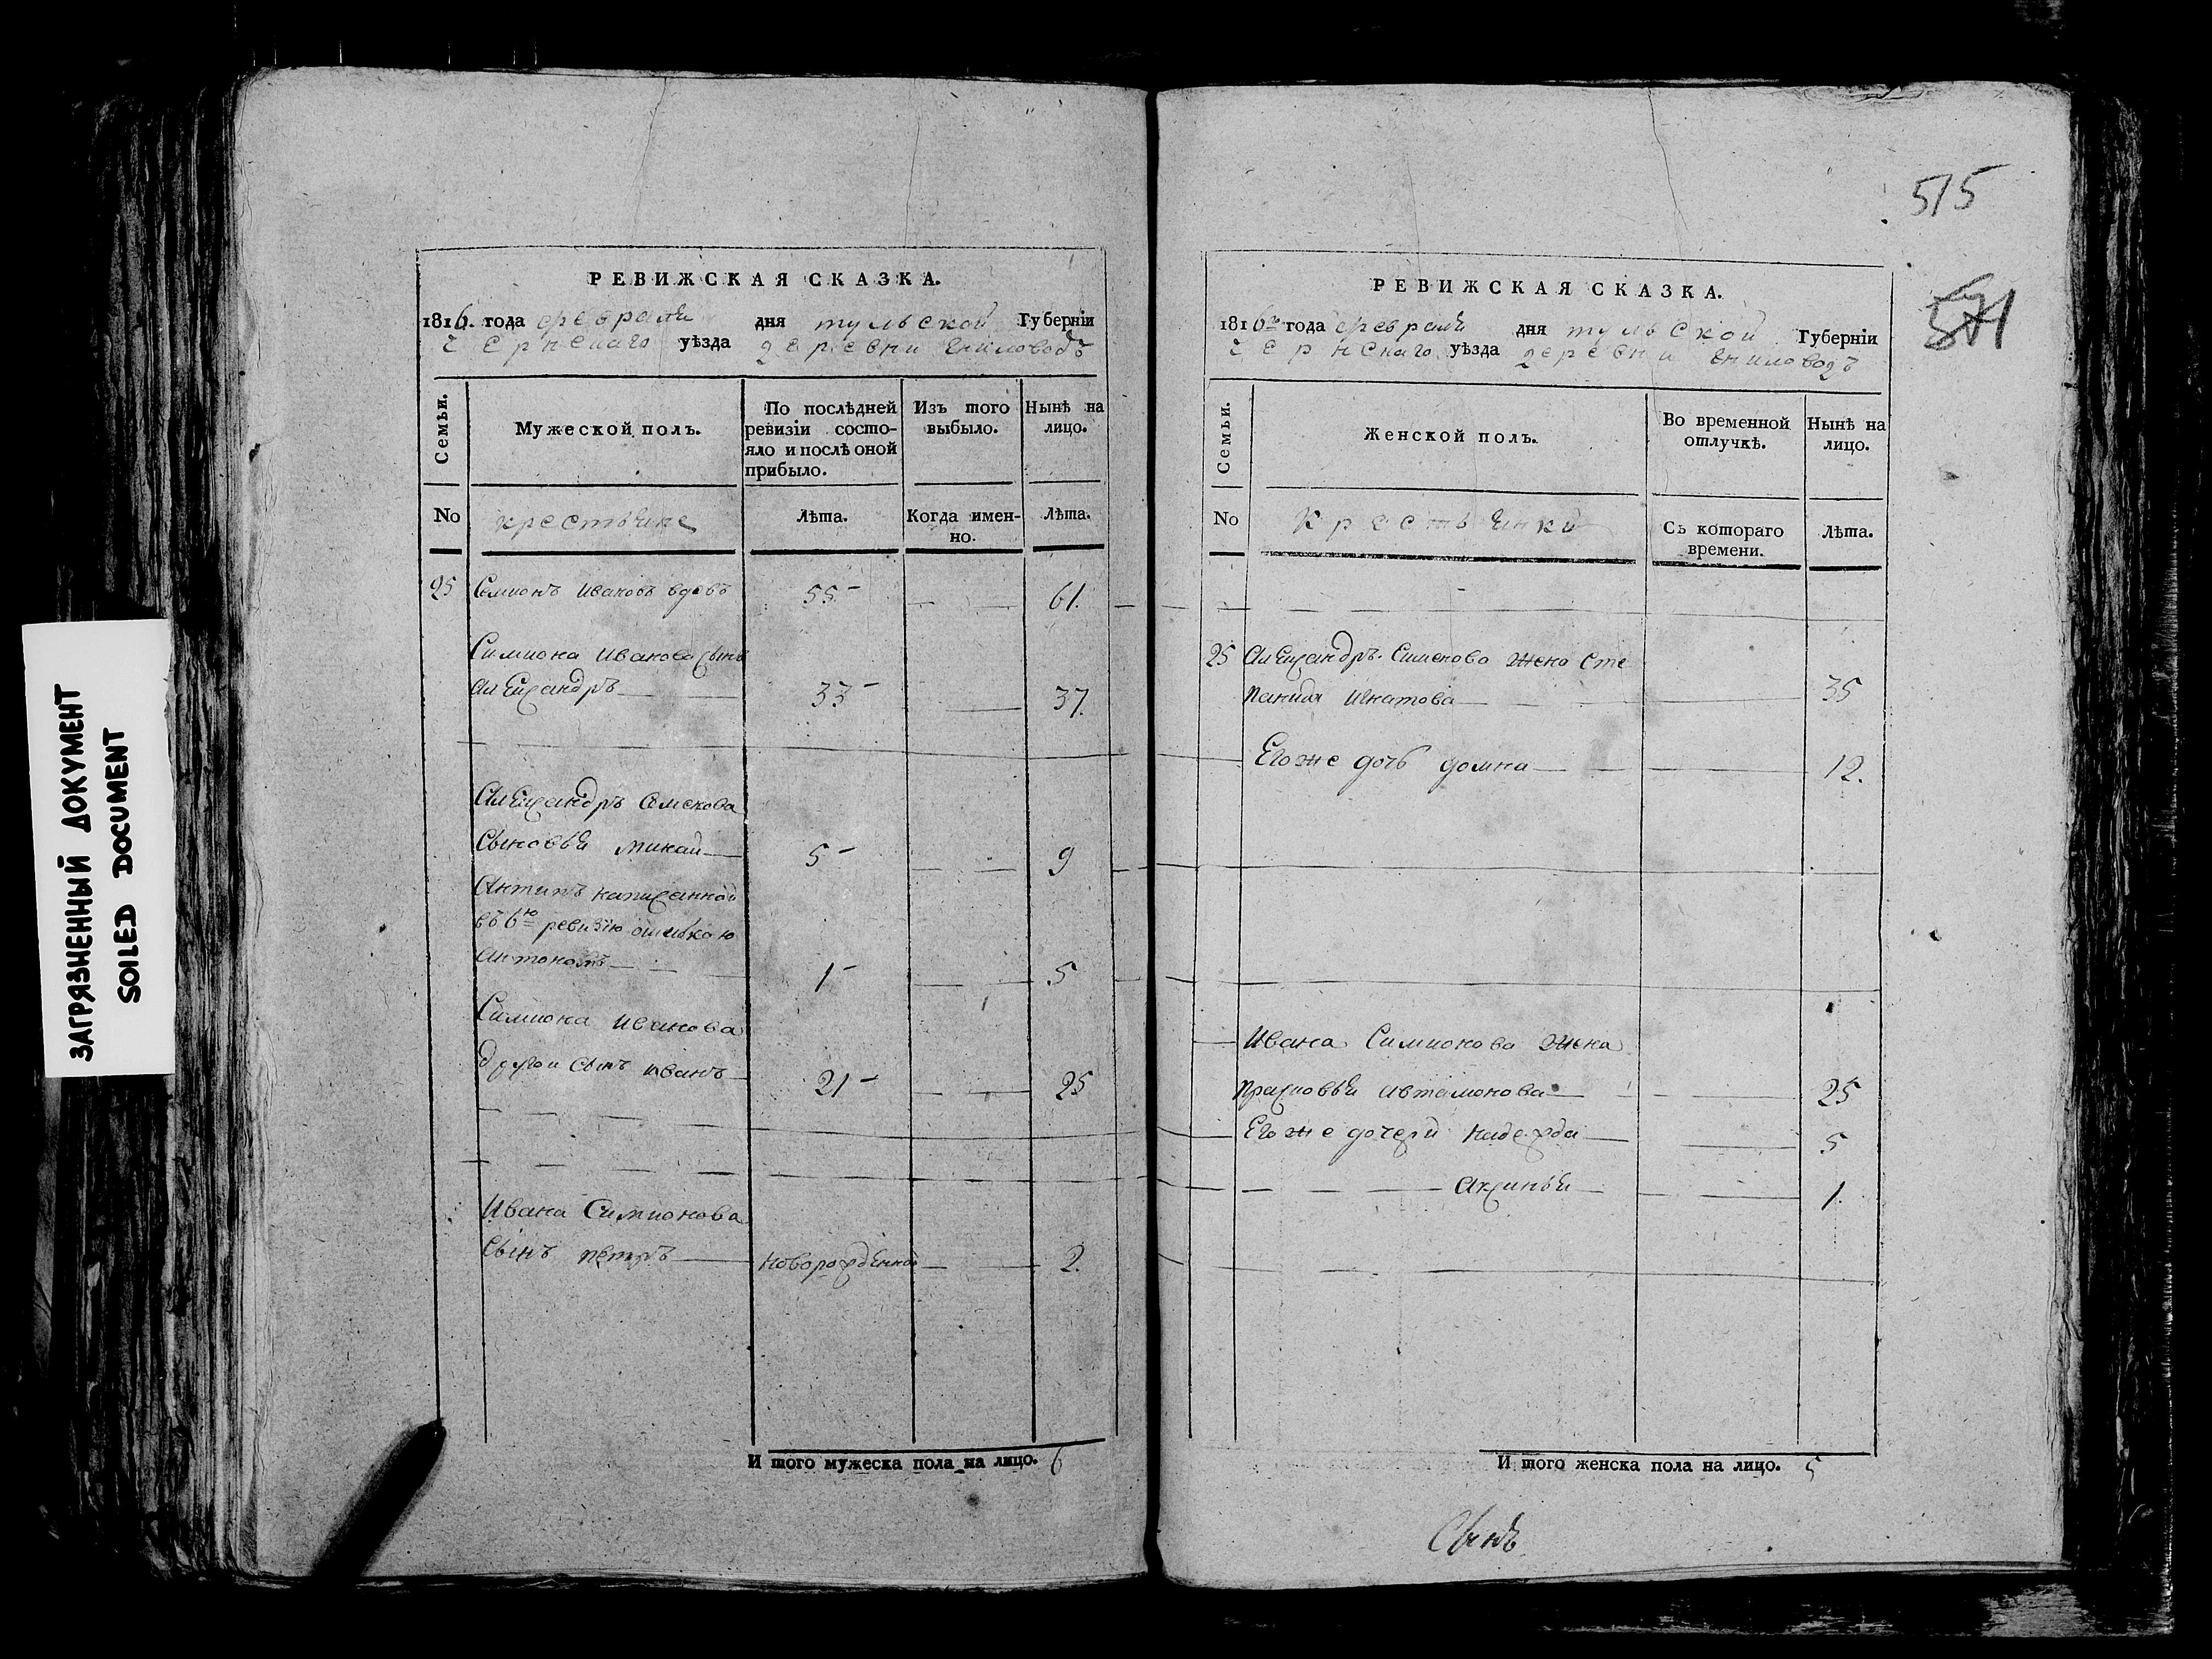 ЗАГРЯЗНЕННЫЙ ДОКУМЕНТ
SOILED DOCUMENT
РЕВИЖСКАЯ СКАЗКА.
1816. года февраля дня тульской Губерніи
чернскаго уѣзда деревни
Семьи.
Мужеской полъ.
По послѣдней ревизіи состо-
яло и послѣ оной
прибыло.
Изъ того
выбыло.
Нынѣ на
лицо.
No крестьяне Лѣта. Когда имен-
но. Лѣта.
25 Семионъ Ивановъ вдовъ 55 61.
Симиона Иванова сынъ
Александръ 33 37.
Александръ Семенова
сыновья 5 9
Антипъ написанной
въ 6ю ревизію ошибкою
1 5
Симиона Иванова
другой сынъ Иванъ 21 25
Ивана Симионова
сынъ петръ новорожденной 2.
И того мужеска пола на лицо. 6
515
РЕВИЖСКАЯ СКАЗКА.
1816го года февраля дня тульской Губерніи
чернскаго уѣзда деревни
Семьи.
Женской полъ.
Во временной
отлучкѣ.
Нынѣ на
лицо.
No Крестьянки Съ котораго
времени. Лѣта.
25 Александръ Сименова жена Сте
панида Игнатова 35
Егоже дочь домна 12.
Ивана Симионова жена
прасковья автамонова 25
Егоже дочери надежда 5
аксинья 1.
И того женска пола на лицо. 5
Сынъ